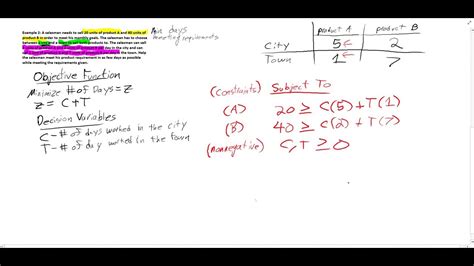 Example 2: A salesman needs to sell 20 units of product A and 40 units of
product B in order to meet his monthly goals. The salesman has to choose
between a to sell both products to. The salesman can sell
day in the city and can
the town. Help
the salesman meet his product requirement in as few days as possible
while meeting the requirements given.
Min days
meeting requirements
product A product B
City 5 ← 2
Town 1 ← 7
Objective Function
Minimize # of Days = Z
Z = C + T
Decision Variables
C - # of days worked in the city
T - # of day worked in the town
(Constraints) Subject To
(A) 20 ≥ C(5) + T(1)
(B) 40 ≥ C(2) + T(7)
(nonnegative) C, T ≥ 0